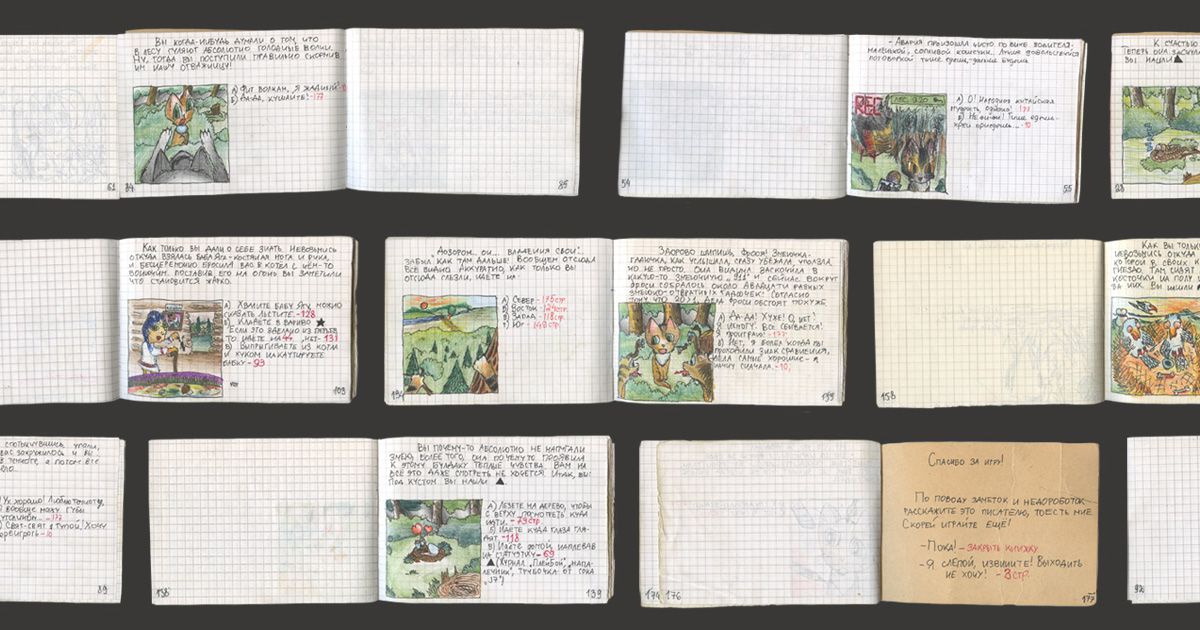 Вы когда-нибудь думали о том, что
в лесу гуляют абсолютно голодные волки.
Ну, тогда вы поступили правильно скормив
им вашу отважницу!
А) Фиг волкам, я жадный!
Б) Да-да, кушайте! -177
61
84
85
- Авария произошла чисто по вине водителя-
маленькой, сопливой
поговоркой тише едешь, дальше будешь.
REC
А) О! Народная китайская
мудрость однако! 171
Б) Не ой-ой! Тише едешь-
хрен приедешь... -10
54
55
К счастью
Теперь она заснула
Вы нашли ▲
28
Как только вы дали о себе знать. Невозьмись
откуда взялась Баба Яга-костяная нога и рука,
и бесцеремонно бросила вас в котёл с чем-то
вонючим. Поставив его на огонь вы заметили
что становится жарко.
А) Хвалите Бабу Ягу можно
сказать льстите. -128
Б) Кладёте в варево ★
Если это сделано из перьев
то идёте на 44, нет -131
В) Выпрыгиваете из котла
и хуком нокаутируете
бабку -93
103
Дозором, ои... владения свои.
Забыл как там дальше! Вообщем отсюда
всё видно. Аккуратно, как только вы
отсюда слезли, идёте на:
А) Север -175 стр
Б) Восток -124 стр
В) Запад -118 стр
Г) Юг -148 стр.
134
Здорово шипишь, Фрося! Змеючка-
гадючка, как услышала, сразу убежала, уползла,
но не просто. Она видимо заскочила в
какую-то змеючную „911" и сейчас вокруг
Фроси собралось около двадцати разных
змеючно-отвратных гадючек! Согласно
тому что 20>1, дела Фроси обстоят похуже
А) Да-да! Хуже! О, нет!
Я не могу! Всё сбывается!
Я проиграю! -177
Б) Нет, я болел когда вы
проходили знак сравнения,
дела самые хорошие - я
начну сначала. -10,
158
Как вы только
невозьмись откуда
которой в своих к
гнездо. Там сидят
косточки на полу и
за них. Вы нашли
споткнувшись упали,
вас закружилось и вы
в темноте, а потом всё
Ух хорошо! Люблю темноту,
Свят-свят я тупой! Хочу
переиграть -10
89
138
Вы почему-то абсолютно не напугали
змею, более того, она почему-то проявила
к этому булдаку тёплые чувства. Вам на
всё это даже смотреть не хочется. Итак, вы
под кустом вы нашли ▲
А) Лезете на дерево, чтобы
с верху посмотреть куда
идти. -79 стр
Б) Идёте куда глаза гля-
дят. -118
В) Идёте домой, наплевав
на статуэтку -69
▲ (Журнал „Плейбой", „Напа-
лечник", трубочка от сока
„J7")
139
174 176
Спасибо за игру!
По поводу заметок и недоработок
расскажите это писателю, тоесть мне
Скорей играйте ещё!
-Пока! - закрыть книжку
-Я слепой, извините! Выходить
не хочу! - 3 стр
177
92